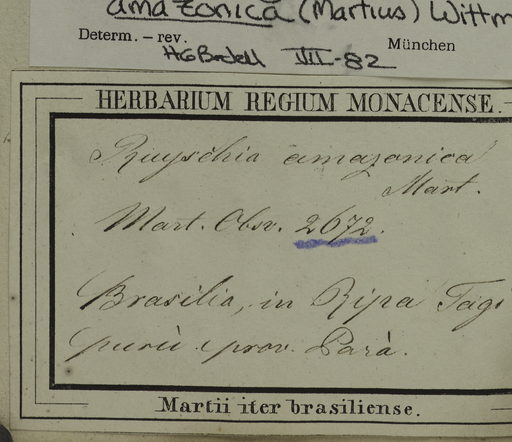 amazonica (Martius) Wittm
Determ. – rev.
München
HGBedell VII-82
HERBARIUM REGIUM MONACENSE.
Ruyschia amazonica
Mart.
Mart. Obs. 2672.
Brasilia, in Ripa Tagi
purù prov. Parà.
Martii iter brasiliense.